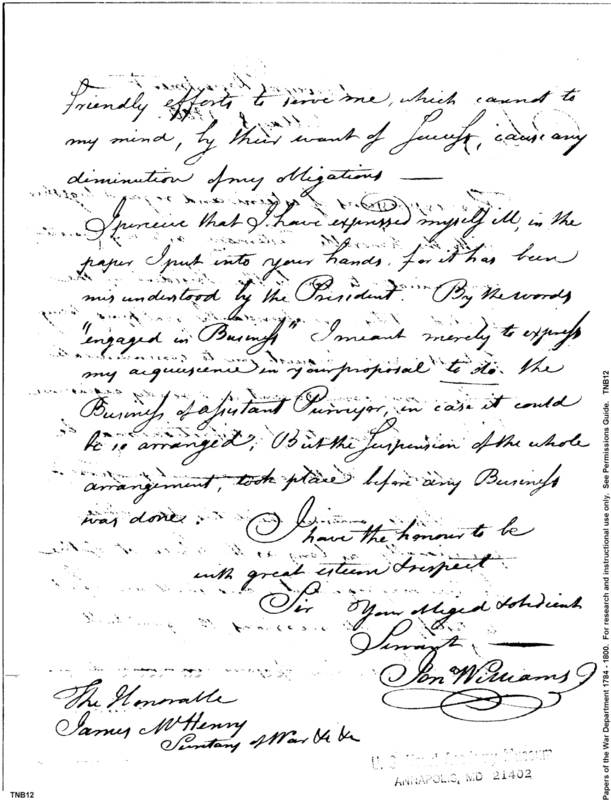 Friendly efforts to serve me, which cannot to
my mind, by their want of Success, cause any
diminution of my obligations —
I perceive that I have expressed myself ill, in the
paper I put into your hands. for it has been
mis understood by the President. By the words
"engaged in Business" I meant merely to express
my acquiescence in your proposal to do the
Business of assistant Purveyor, in case it could
be so arranged; But the Suspension of the whole
arrangement, took place before any Business
was done.
I have the honour to be
with great esteem & respect
Sir Your obliged & obedient
Servant —
Jonª Williams
The Honorable
James McHenry
Secretary of War &c &c
U. S. Naval Academy Museum
ANNAPOLIS, MD 21402
TNB12
Papers of the War Department 1784 - 1800. For research and instructional use only. See Permissions Guide. TNB12